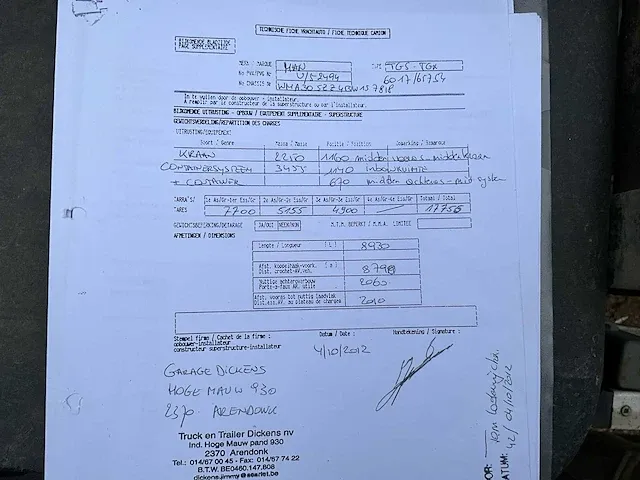 TECHNISCHE FICHE VRACHTAUTO / FICHE TECHNIQUE CAMION
BIJKOMENDE BLADZIJDE
PAGE SUPPLEMENTAIRE
MERK / MARQUE MAN TYPE TGS-TGX
No PVG/PVG Nr U/58494 6017/65754
No CHASSIS Nr
In te vullen door de opbouwer - installateur.
A remplir par le constructeur de la superstructure ou par l'installateur.
BIJKOMENDE UITRUSTING - OPBOUW / EQUIPEMENT SUPPLEMENTAIRE - SUPERSTRUCTURE
GEWICHTSVERDELING/REPARTITION DES CHARGES
UITRUSTING/EQUIPEMENT
Soort / Genre Massa / Masse Positie / Position Opmerking / Remarque
KRAAN 2250 1160 midden vooras - midden kraan
CONTAINERSYSTEEM 3455 1140 inbouwruimte
+ CONTAINER 670 midden achteras - mid system
TARRA'S/ 1e As/Gr-1er Ess/Gr 2e As/Gr-2e Ess/Gr 3e As/Gr-3e Ess/Gr 4e As/Gr-4e Ess/Gr Totaal / Total
TARES 7700 5155 4900 17755
GEWICHTSBEPERKING/DETARAGE JA/OUI NEEN/NON M.T.M. BEPERKT / M.M.A. LIMITEE
AFMETINGEN / DIMENSIONS
Lengte / Longueur (L) 8930
Afst. koppelhaak-voork. (a)
Dist. crochet-AV.veh. 8790
Nuttige achteroverbouw
Porte-a-faux AR. utile 2060
Afst. vooras tot nuttig laadvlak
Dist.ess.AV. au plateau de charges 2010
Stempel firma / Cachet de la firme : Datum / Date : Handtekening / Signature :
opbouwer-installateur
constructeur superstructure-installateur 4/10/2012
GARAGE DICKENS
HOGE MAUW 930
2370 ARENDONK
Truck en Trailer Dickens nv
Ind. Hoge Mauw pand 930
2370 Arendonk
Tel.: 014/67 00 45 - Fax: 014/67 74 22
B.T.W. BE0460.147.808
dickens.jimmy@skarlet.be